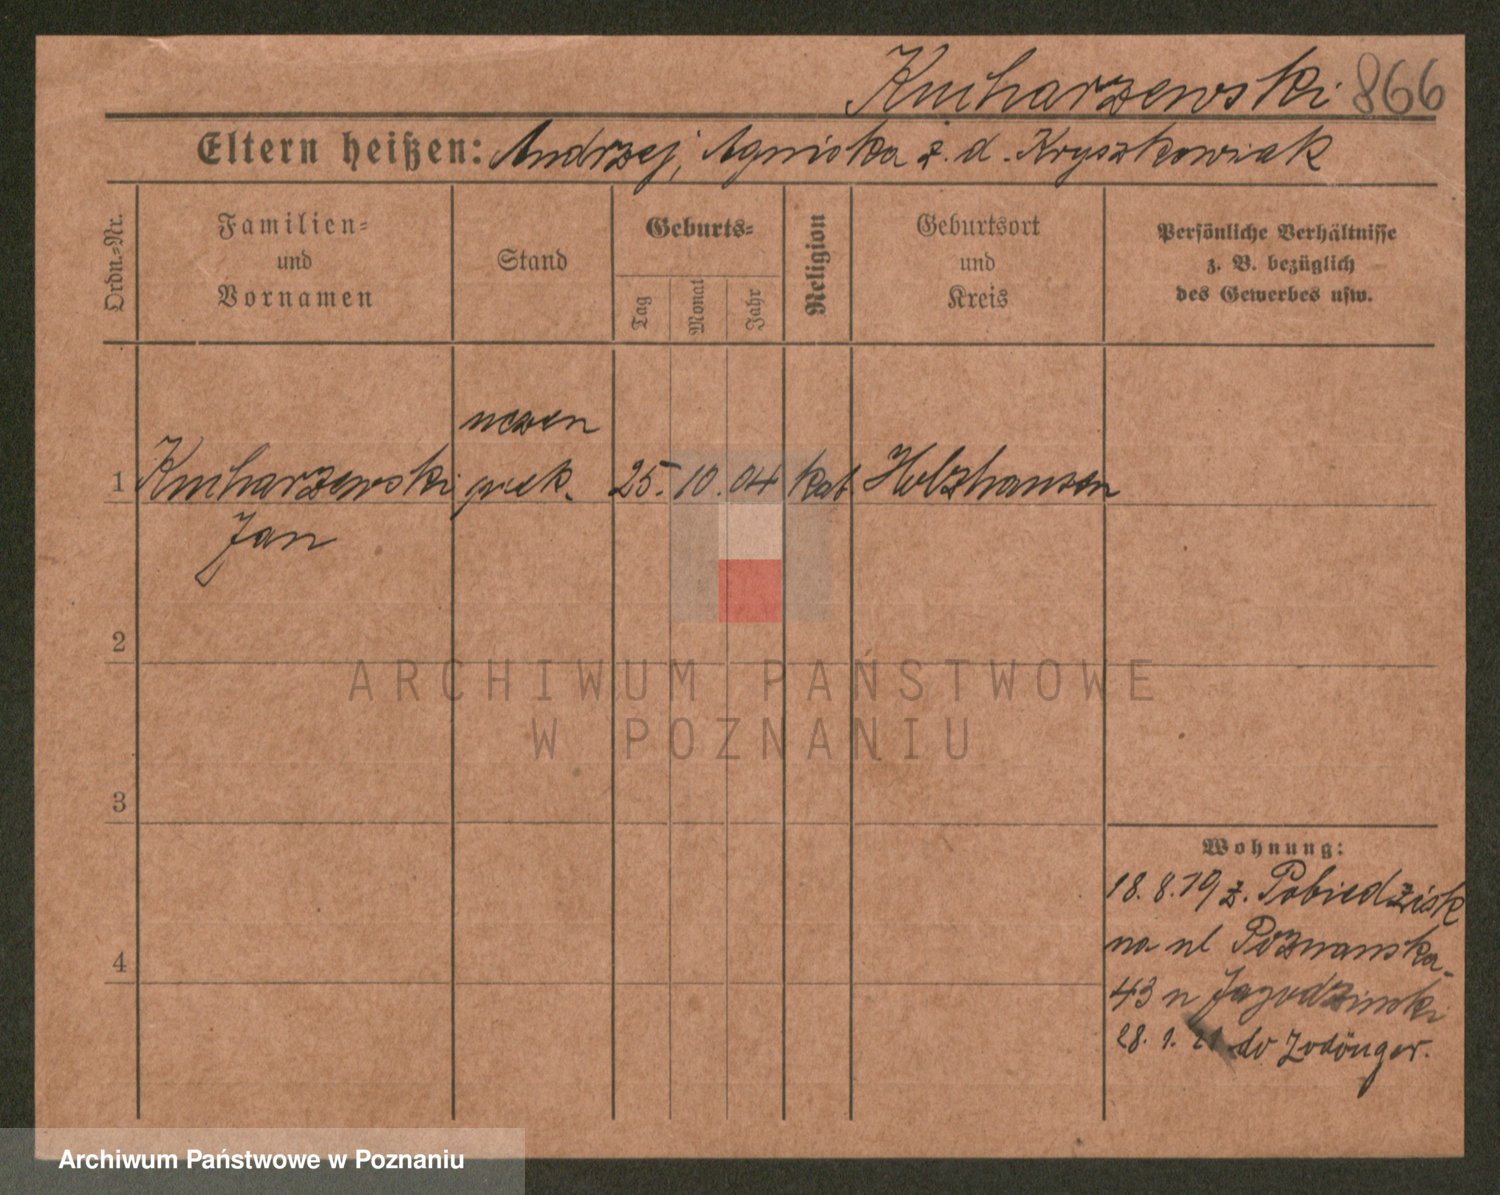 Kucharzewski 866
Eltern heißen: Andrzej, Agniska z. d. Kryszkowiak
Ordn.=Nr.
Familien=
und
Vornamen
Stand
Geburts=
Tag
Monat
Jahr
Religion
Geburtsort
und
Kreis
Persönliche Verhältnisse
z. B. bezüglich
des Gewerbes usw.
1
Kucharzewski
Jan
uczen
piek.
25. 10. 04
kat.
Holzhausen
2
3
4
Wohnung:
18. 8. 19 z. Pobiedzisk
na ul Poznanska
43 u Jagodzinski
28. 1. 21 do
ARCHIWUM PAŃSTWOWE
W POZNANIU
Archiwum Państwowe w Poznaniu